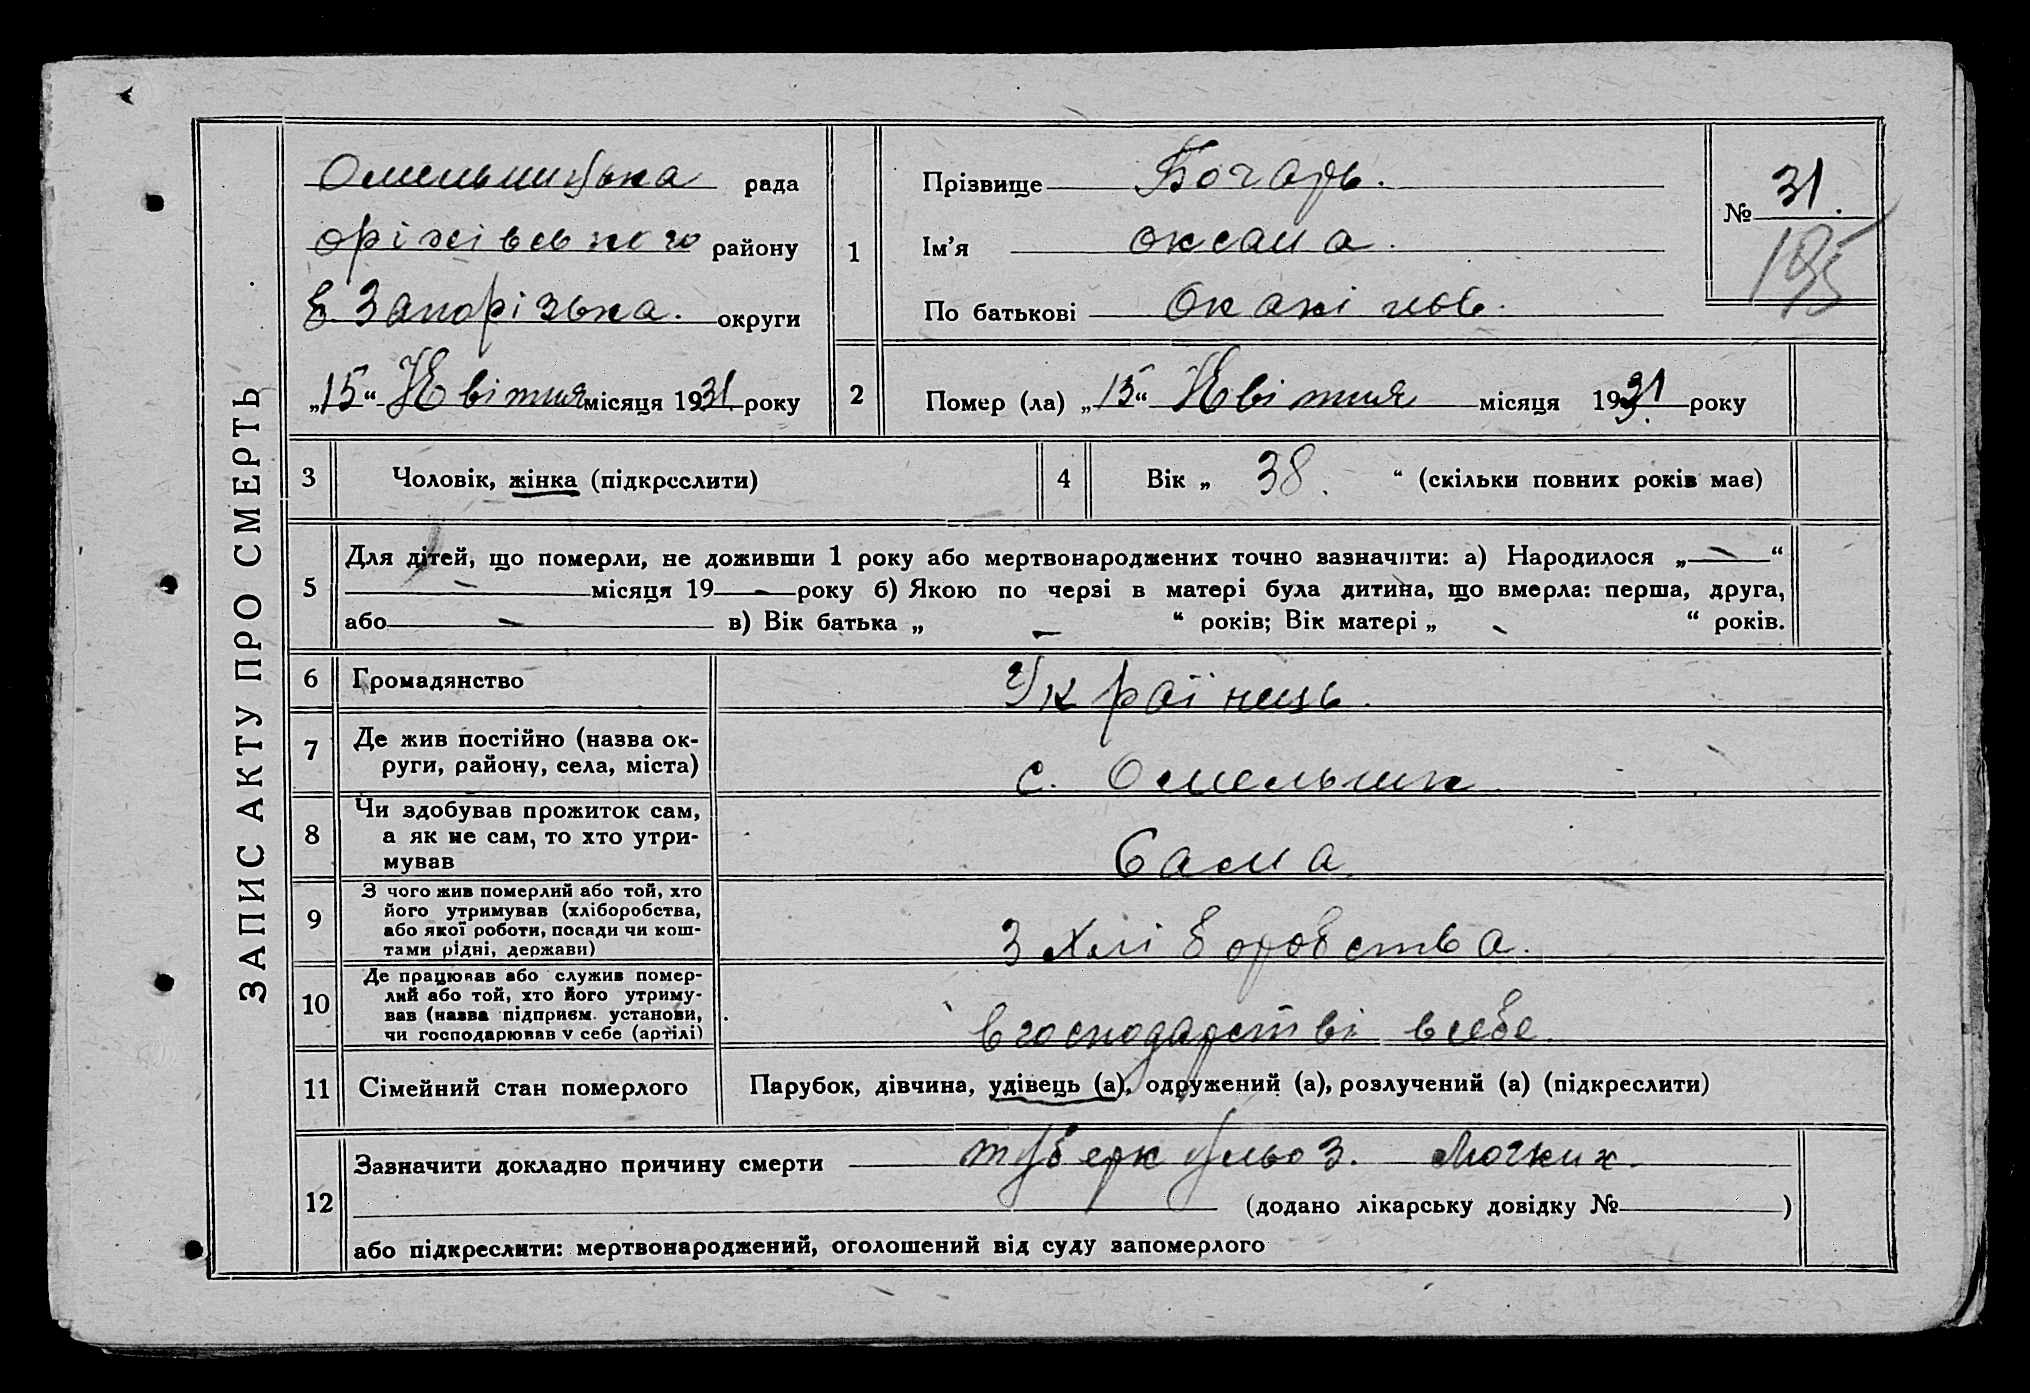 ЗАПИС АКТУ ПРО СМЕРТЬ
Омельницька рада
оріхівського району
Запорізька. округи
„15“ Квітня місяця 1931 року
1
Прізвище Бочарь.
Ім’я оксана.
По батькові
№ 31.
195
2
Помер (ла) „15“ Квітня місяця 1931. року
3
Чоловік, жінка (підкреслити)
4
Вік „ 38. “ (скільки повних років має)
5
Для дітей, що померли, не доживши 1 року або мертвонароджених точно зазначити: а) Народилося „ — “
— місяця 19 — року б) Якою по черзі в матері була дитина, що вмерла: перша, друга,
або — в) Вік батька „ — “ років; Вік матері „ - “ років.
6
Громадянство
Українець.
7
Де жив постійно (назва ок-
руги, району, села, міста)
с. Омельник
8
Чи здобував прожиток сам,
а як не сам, то хто утри-
мував
Сама
9
З чого жив померлий або той, хто
його утримував (хліборобства,
або якої роботи, посади чи кош-
тами рідні, держави)
З хліборобства.
10
Де працював або служив помер-
лий або той, хто його утриму-
вав (назва підприєм. установи,
чи господарював у себе (артілі)
в господарстві в себе.
11
Сімейний стан померлого
Парубок, дівчина, удівець (а), одружений (а), розлучений (а) (підкреслити)
12
Зазначити докладно причину смерти туберкульоз.
(додано лікарську довідку № )
або підкреслити: мертвонароджений, оголошений від суду запомерлого